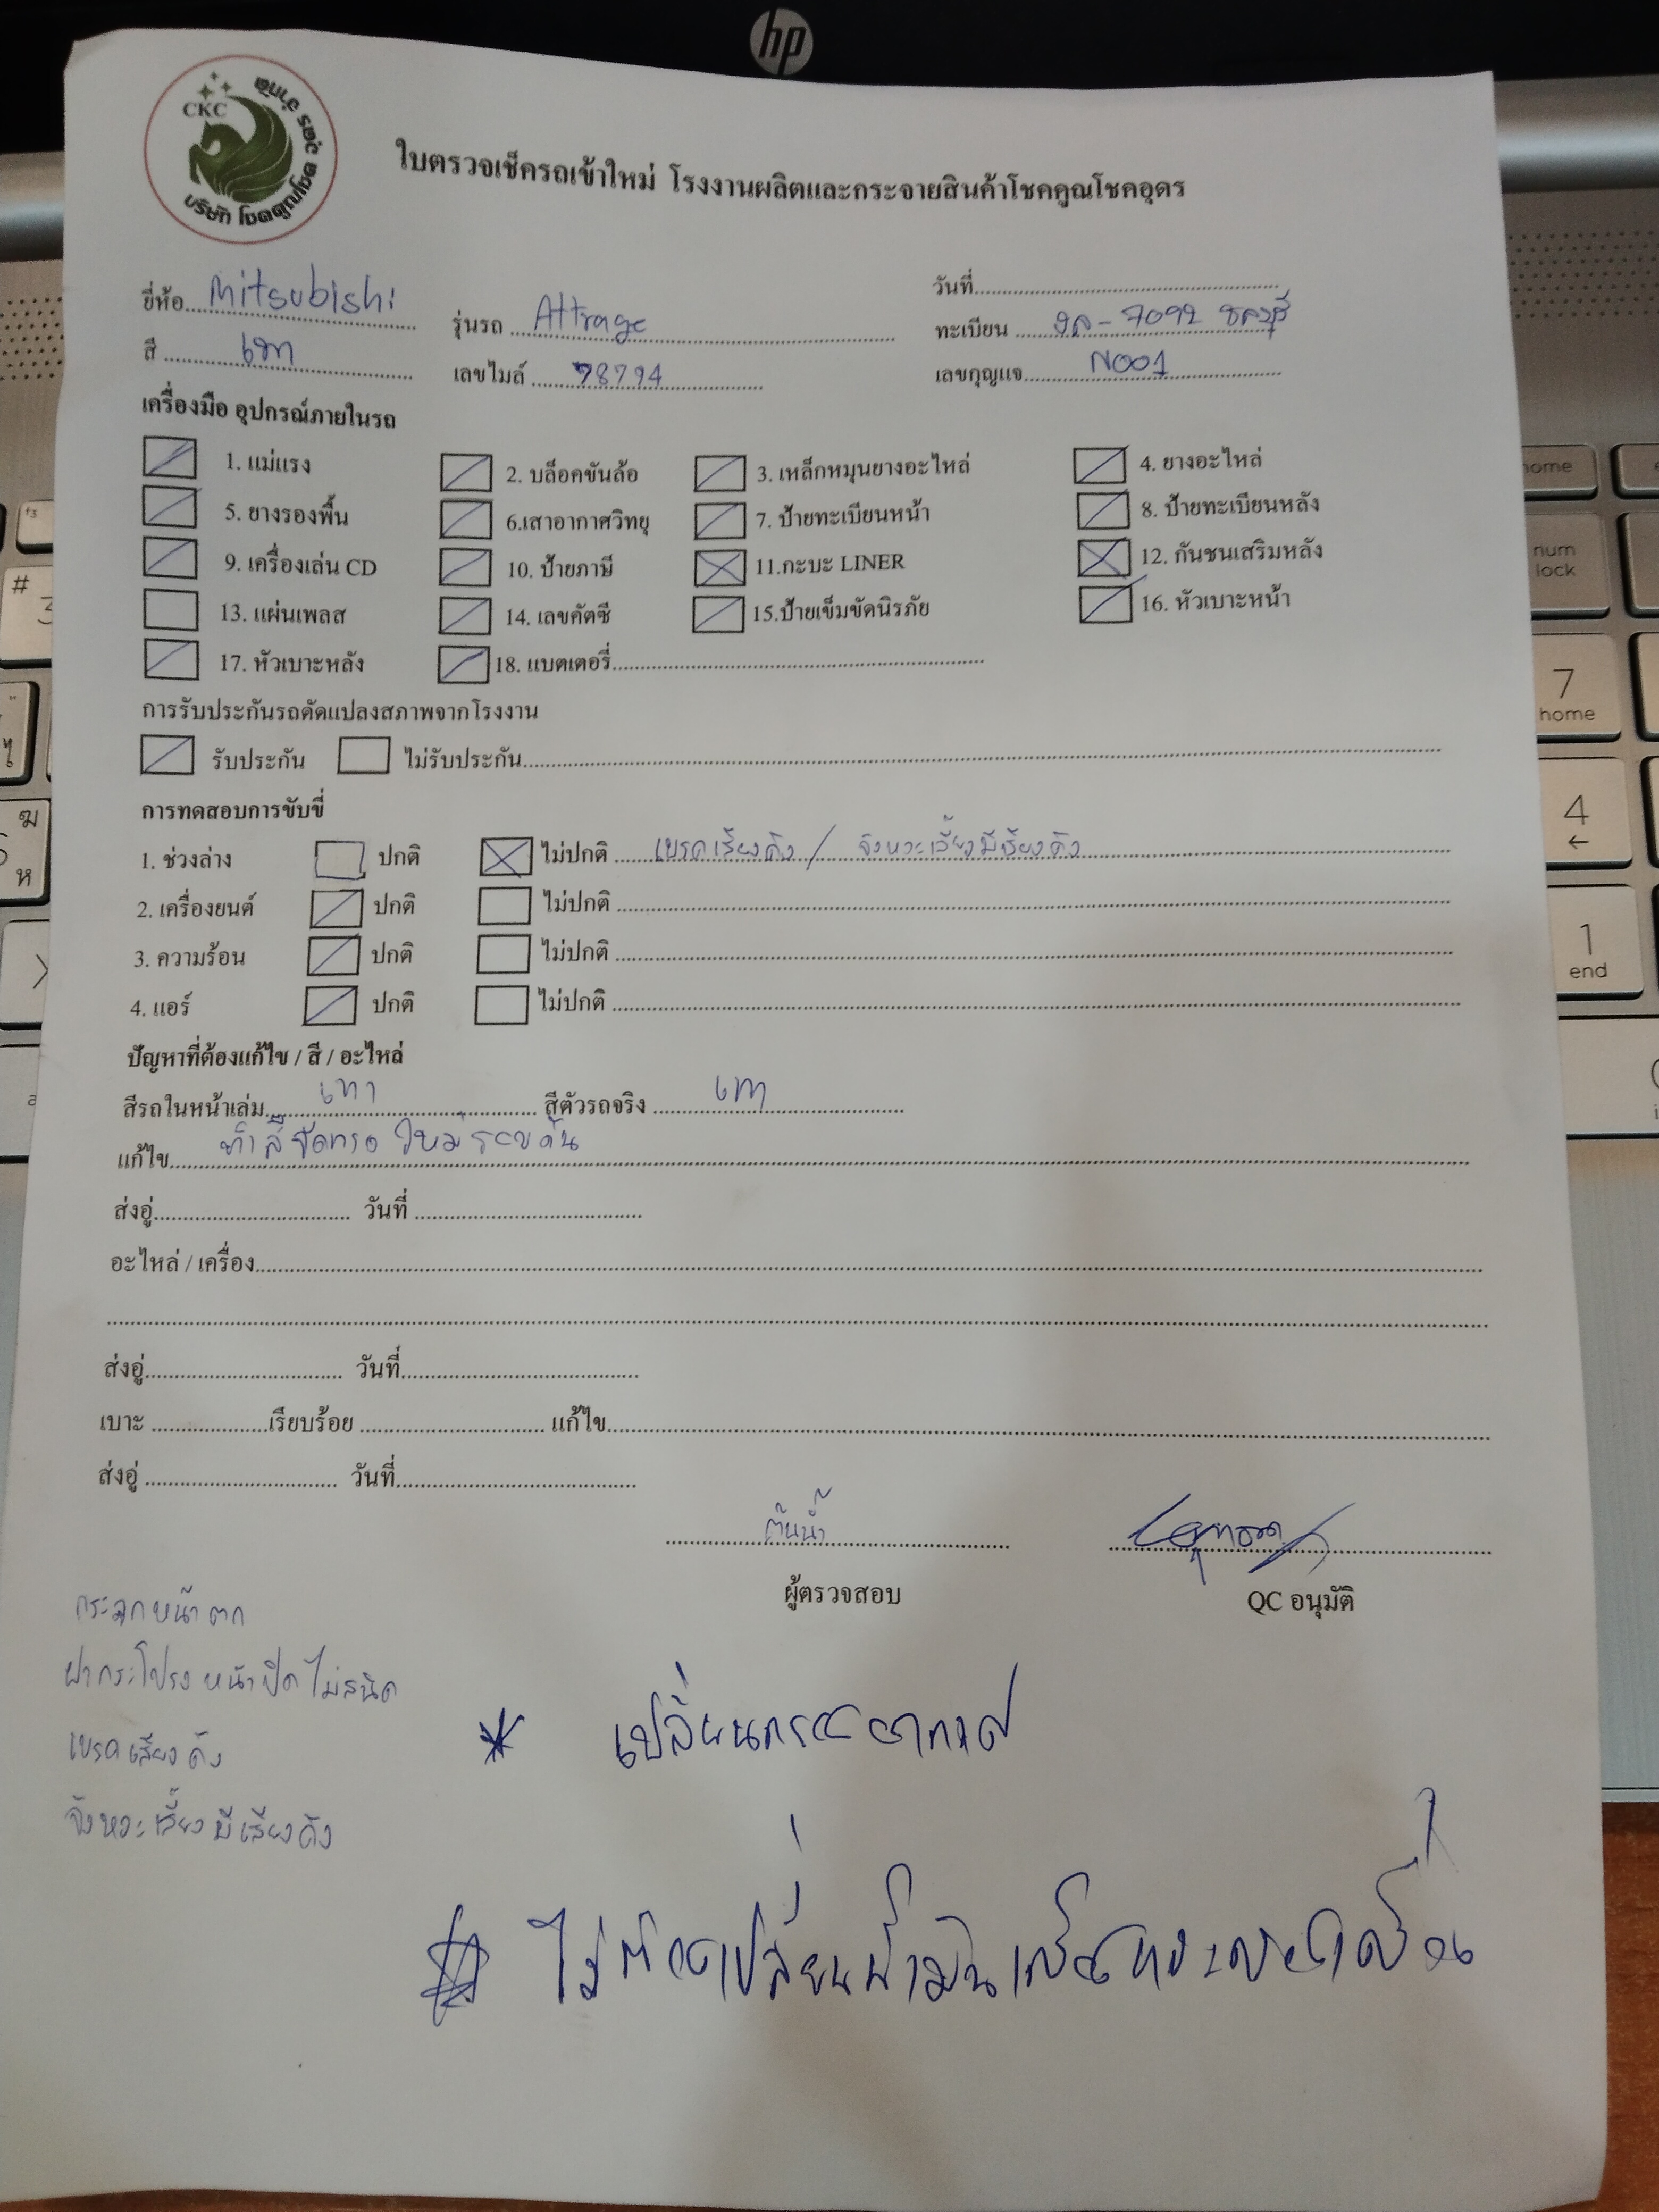 hp
CKC
บริษัท โชคคูณโชค อุดร จำกัด
ใบตรวจเช็ครถเข้าใหม่ โรงงานผลิตและกระจายสินค้าโชคคูณโชคอุดร
วันที่
ยี่ห้อ Mitsubishi รุ่นรถ Attrage ทะเบียน 7092 ชลบุรี
สี เทา เลขไมล์ 78794 เลขกุญแจ N001
เครื่องมือ อุปกรณ์ภายในรถ
1. แม่แรง 2. บล็อคขันล้อ 3. เหล็กหมุนยางอะไหล่ 4. ยางอะไหล่
5. ยางรองพื้น 6.เสาอากาศวิทยุ 7. ป้ายทะเบียนหน้า 8. ป้ายทะเบียนหลัง
9. เครื่องเล่น CD 10. ป้ายภาษี 11.กะบะ LINER 12. กันชนเสริมหลัง
13. แผ่นเพลส 14. เลขคัตซี 15.ป้ายเข็มขัดนิรภัย 16. หัวเบาะหน้า
17. หัวเบาะหลัง 18. แบตเตอรี่
การรับประกันรถดัดแปลงสภาพจากโรงงาน
รับประกัน ไม่รับประกัน
การทดสอบการขับขี่
1. ช่วงล่าง ปกติ ไม่ปกติ เบรคเสียงดัง / จังหวะเลี้ยวมีเสียงดัง
2. เครื่องยนต์ ปกติ ไม่ปกติ
3. ความร้อน ปกติ ไม่ปกติ
4. แอร์ ปกติ ไม่ปกติ
ปัญหาที่ต้องแก้ไข / สี / อะไหล่
สีรถในหน้าเล่ม เทา สีตัวรถจริง เทา
แก้ไข ทำสีขัดทรง ใหม่รอบคัน
ส่งอู่ วันที่
อะไหล่ / เครื่อง
ส่งอู่ วันที่
เบาะ เรียบร้อย แก้ไข
ส่งอู่ วันที่
ต้นน้ำ
ผู้ตรวจสอบ QC อนุมัติ
กระจกหน้าตก
ฝากระโปรงหน้าปิดไม่สนิด
เบรคเสียงดัง
จังหวะเลี้ยวมีเสียงดัง
* เปลี่ยนกรองอากาศ
ไม่ต้องเปลี่ยนน้ำมัน
num lock
7 home
4
1 end